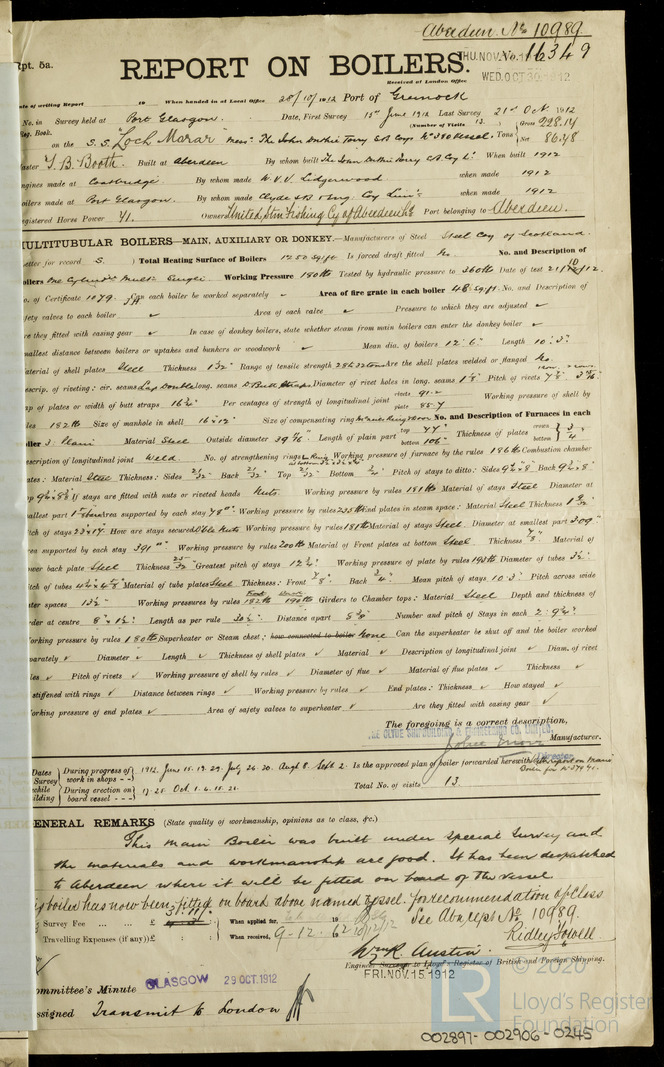 Aberdeen No 10989.
Rpt. 5a.
THU.NOV. 1912
No. 11349
REPORT ON BOILERS.
Received at London Office WED.OCT 30.1912
Date of writing Report 19 When handed in at Local Office 28/10/1912 Port of Greenock
No. in Survey held at Port Glasgow. Date, First Survey 15th June 1912 Last Survey 21st Oct. 1912
Reg. Book. (Number of Visits 13.)
on the S.S. "Loch Morar" Tons Gross 228.14
Net 86.48
Master J. B. Booth. Built at Aberdeen By whom built The John Duthie Torry S.B. Co. Ld. When built 1912
Engines made at Coatbridge By whom made W. V. V. Lidgerwood when made 1912
Boilers made at Port Glasgow. By whom made Clyde S.B. & Eng. Coy Limd. when made 1912
Registered Horse Power 41. Owners United Stm Fishing Cy of Aberdeen Ld Port belonging to Aberdeen.
MULTITUBULAR BOILERS—MAIN, AUXILIARY OR DONKEY.—Manufacturers of Steel Steel Coy of Scotland.
Letter for record S. ) Total Heating Surface of Boilers 1250 sq. ft. Is forced draft fitted No. No. and Description of
Boilers One Cylindl Multi Single Working Pressure 180 lb Tested by hydraulic pressure to 360 lb Date of test 21/10/12.
No. of Certificate 1079. Can each boiler be worked separately ✓ Area of fire grate in each boiler 48 sq. ft. No. and Description of
safety valves to each boiler ✓ Area of each valve ✓ Pressure to which they are adjusted ✓
Are they fitted with easing gear ✓ In case of donkey boilers, state whether steam from main boilers can enter the donkey boiler ✓
Smallest distance between boilers or uptakes and bunkers or woodwork ✓ Mean dia. of boilers 12'.6" Length 10'.3"
Material of shell plates Steel Thickness 1 1/32" Range of tensile strength 28 to 32 tons Are the shell plates welded or flanged No.
Descrip. of riveting: cir. seams Lap Double long. seams D Butt Straps Diameter of rivet holes in long. seams 1 1/8" Pitch of rivets 7 7/8"
Lap of plates or width of butt straps 16 3/4" Per centages of strength of longitudinal joint rivets 91.2 plate 85.7 Working pressure of shell by
rules 182 lb Size of manhole in shell 16" x 12" Size of compensating ring No. and Description of Furnaces in each
boiler 3. Plain Material Steel Outside diameter 39 9/16" Length of plain part top 77" bottom 106" Thickness of plates crown bottom 3/4
Description of longitudinal joint Weld. No. of strengthening rings Working pressure of furnace by the rules 186 lb Combustion chamber
plates: Material Steel Thickness: Sides 21/32" Back 21/32" Top 21/32" Bottom 3/4" Pitch of stays to ditto: Sides 9 1/4" x 8" Back 9 1/4" x 8"
If stays are fitted with nuts or riveted heads Nuts. Working pressure by rules 181 lb Material of stays Steel Diameter at
smallest part Area supported by each stay 78" Working pressure by rules 235 lb End plates in steam space: Material Steel Thickness
Pitch of stays 23" x 17" How are stays secured Dble Nuts Working pressure by rules 181 lb Material of stays Steel. Diameter at smallest part 3.09"
Area supported by each stay 391" Working pressure by rules 200 lb Material of Front plates at bottom Steel Thickness 7/8" Material of
Lower back plate Steel Thickness 25/32" Greatest pitch of stays 12 3/4" Working pressure of plate by rules 193 lb Diameter of tubes 3 1/2"
Pitch of tubes Material of tube plates Steel Thickness: Front 7/8" Back 3/4" Mean pitch of stays 10.3" Pitch across wide
water spaces 13 1/2" Working pressures by rules Front 182 lb Back 190 lb Girders to Chamber tops: Material Steel Depth and thickness of
girder at centre 8" x 1 1/2" Length as per rule 30 1/2" Distance apart 8 5/8" Number and pitch of Stays in each 2. 9 1/4"
Working pressure by rules 180 lb Superheater or Steam chest; how connected to boiler None Can the superheater be shut off and the boiler worked
separately ✓ Diameter ✓ Length ✓ Thickness of shell plates ✓ Material ✓ Description of longitudinal joint ✓ Diam. of rivet
holes ✓ Pitch of rivets ✓ Working pressure of shell by rules ✓ Diameter of flue ✓ Material of flue plates ✓ Thickness ✓
If stiffened with rings ✓ Distance between rings ✓ Working pressure by rules ✓ End plates: Thickness ✓ How stayed ✓
Working pressure of end plates ✓ Area of safety valves to superheater ✓ Are they fitted with easing gear ✓
The foregoing is a correct description,
THE CLYDE SHIPBUILDING & ENGINEERING CO. LIMITED.
Manufacturer.
Director
Dates of Survey while building During progress of work in shops - - 1912. June 15. 19. 29. July 26. 30. Aug 8. Sept 2. Is the approved plan of boiler forwarded herewith
During erection on board vessel - - - 17. 25. Oct. 1. 4. 15. 21. Total No. of visits 13.
GENERAL REMARKS (State quality of workmanship, opinions as to class, &c.)
This Main Boiler was built under Special Survey and
the materials and workmanship are good. It has been despatched
to Aberdeen where it will be fitted on board of the vessel
This boiler has now been fitted on board above named vessel. For recommendation of Class
See Abn rept No 10989.
Ridley Fowell
Survey Fee ... ... £ When applied for, 19
Travelling Expenses (if any) £ : : When received, 9-12. 62 10/12/12
Wm R. Austin.
Engineer Surveyor to Lloyd's Register of British and Foreign Shipping.
FRI.NOV.15.1912
Committee's Minute GLASGOW 29 OCT. 1912
Assigned Transmit to London
LR © 2020
Lloyd's Register
Foundation
002897-002906-0245